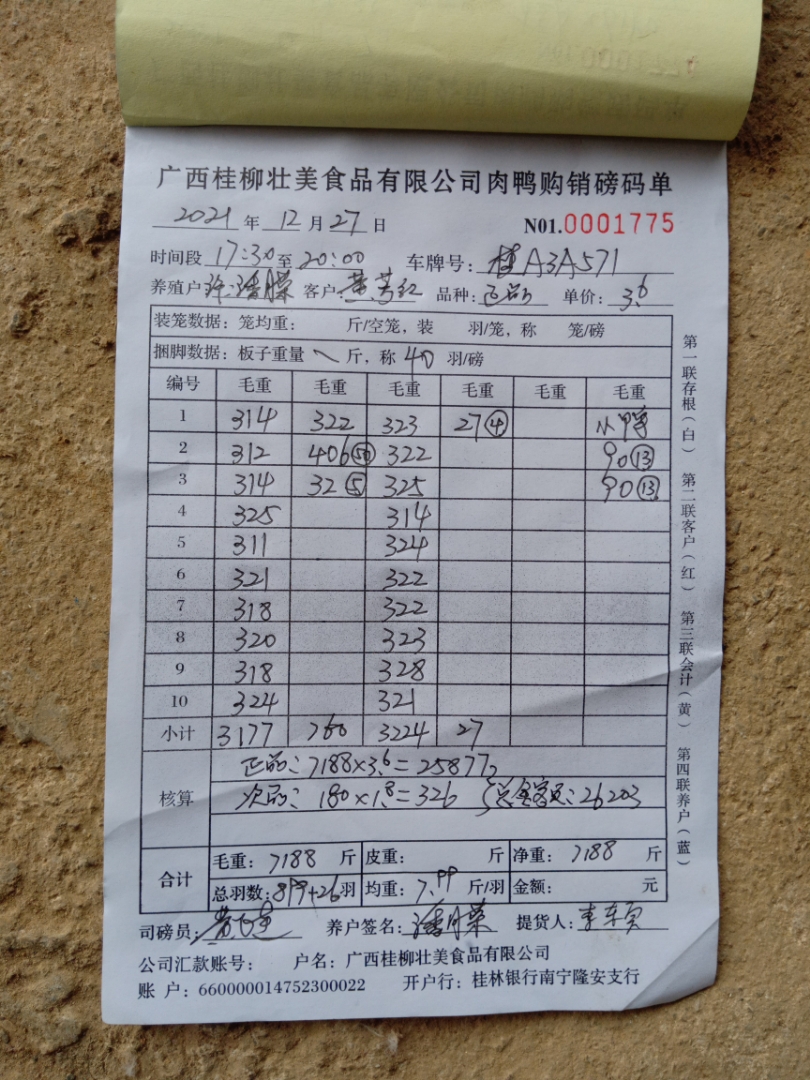 广西桂柳壮美食品有限公司肉鸭购销磅码单
2021年 12月27日 N01.0001775
时间段 17:30至20:00 车牌号: 桂A3A571
养殖户 客户: 品种: 正品 单价: 3.6
装笼数据: 笼均重: 斤/空笼, 装 羽/笼, 称 笼/磅
捆脚数据: 板子重量 斤, 称 40 羽/磅
编号 毛重 毛重 毛重 毛重 毛重 毛重
1 314 322 323 27④ 小鸭
2 312 406㊿ 322 90⑬
3 314 32⑤ 325 90⑬
4 325 314
5 311 324
6 321 322
7 318 322
8 320 323
9 318 328
10 324 321
小计 3177 760 3224 27
核算
正品: 7188×3.6=25877
次品: 180×1.8=326 总金额: 26203
合计
毛重: 7188 斤 皮重: 斤 净重: 7188 斤
总羽数: 899+26羽 均重: 7.99 斤/羽 金额: 元
司磅员: 养户签名: 提货人:
公司汇款账号: 户名: 广西桂柳壮美食品有限公司
账 户: 660000014752300022 开户行: 桂林银行南宁隆安支行
第一联存根(白) 第二联客户(红) 第三联会计(黄) 第四联养户(蓝)